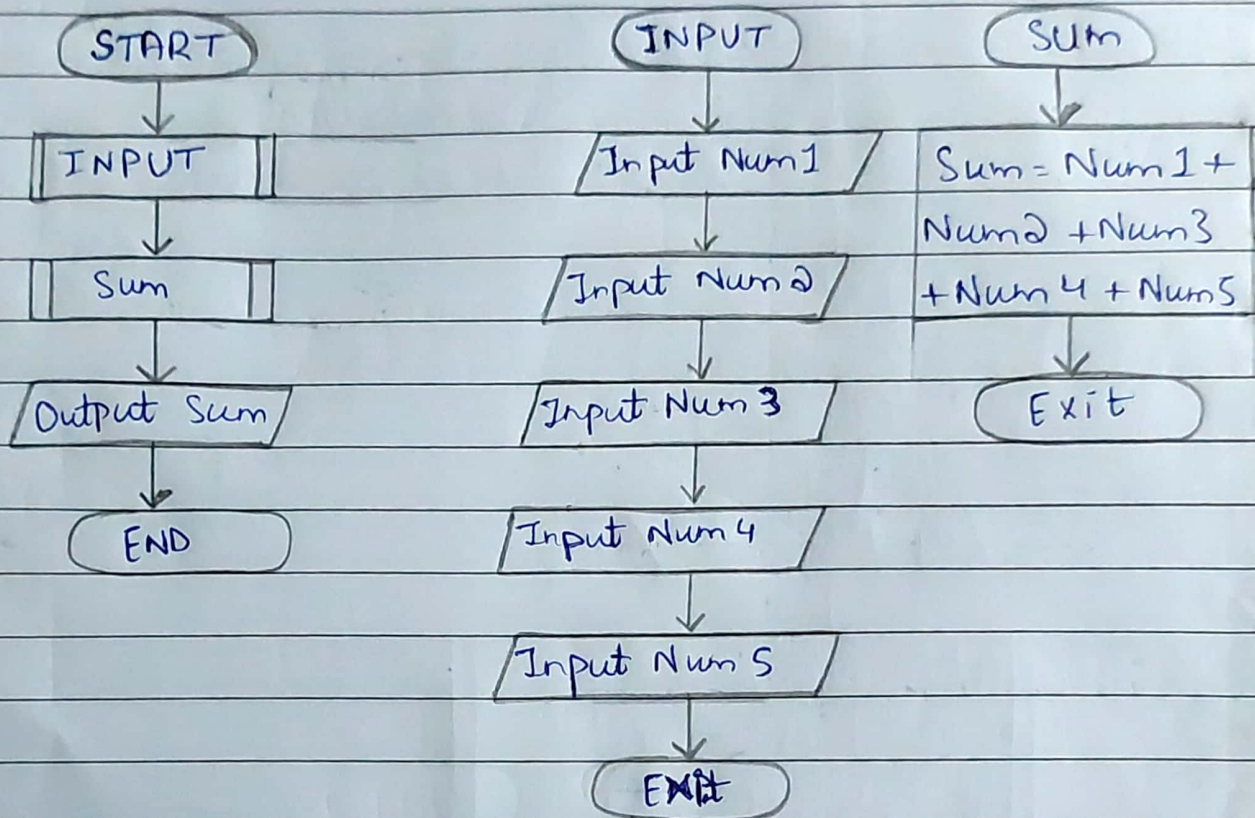 START
INPUT
Sum
Output Sum
END
INPUT
Input Num1
Input Num2
Input Num3
Input Num4
Input Num5
Exit
Sum
Sum = Num1 +
Num2 + Num3
+ Num4 + Num5
Exit